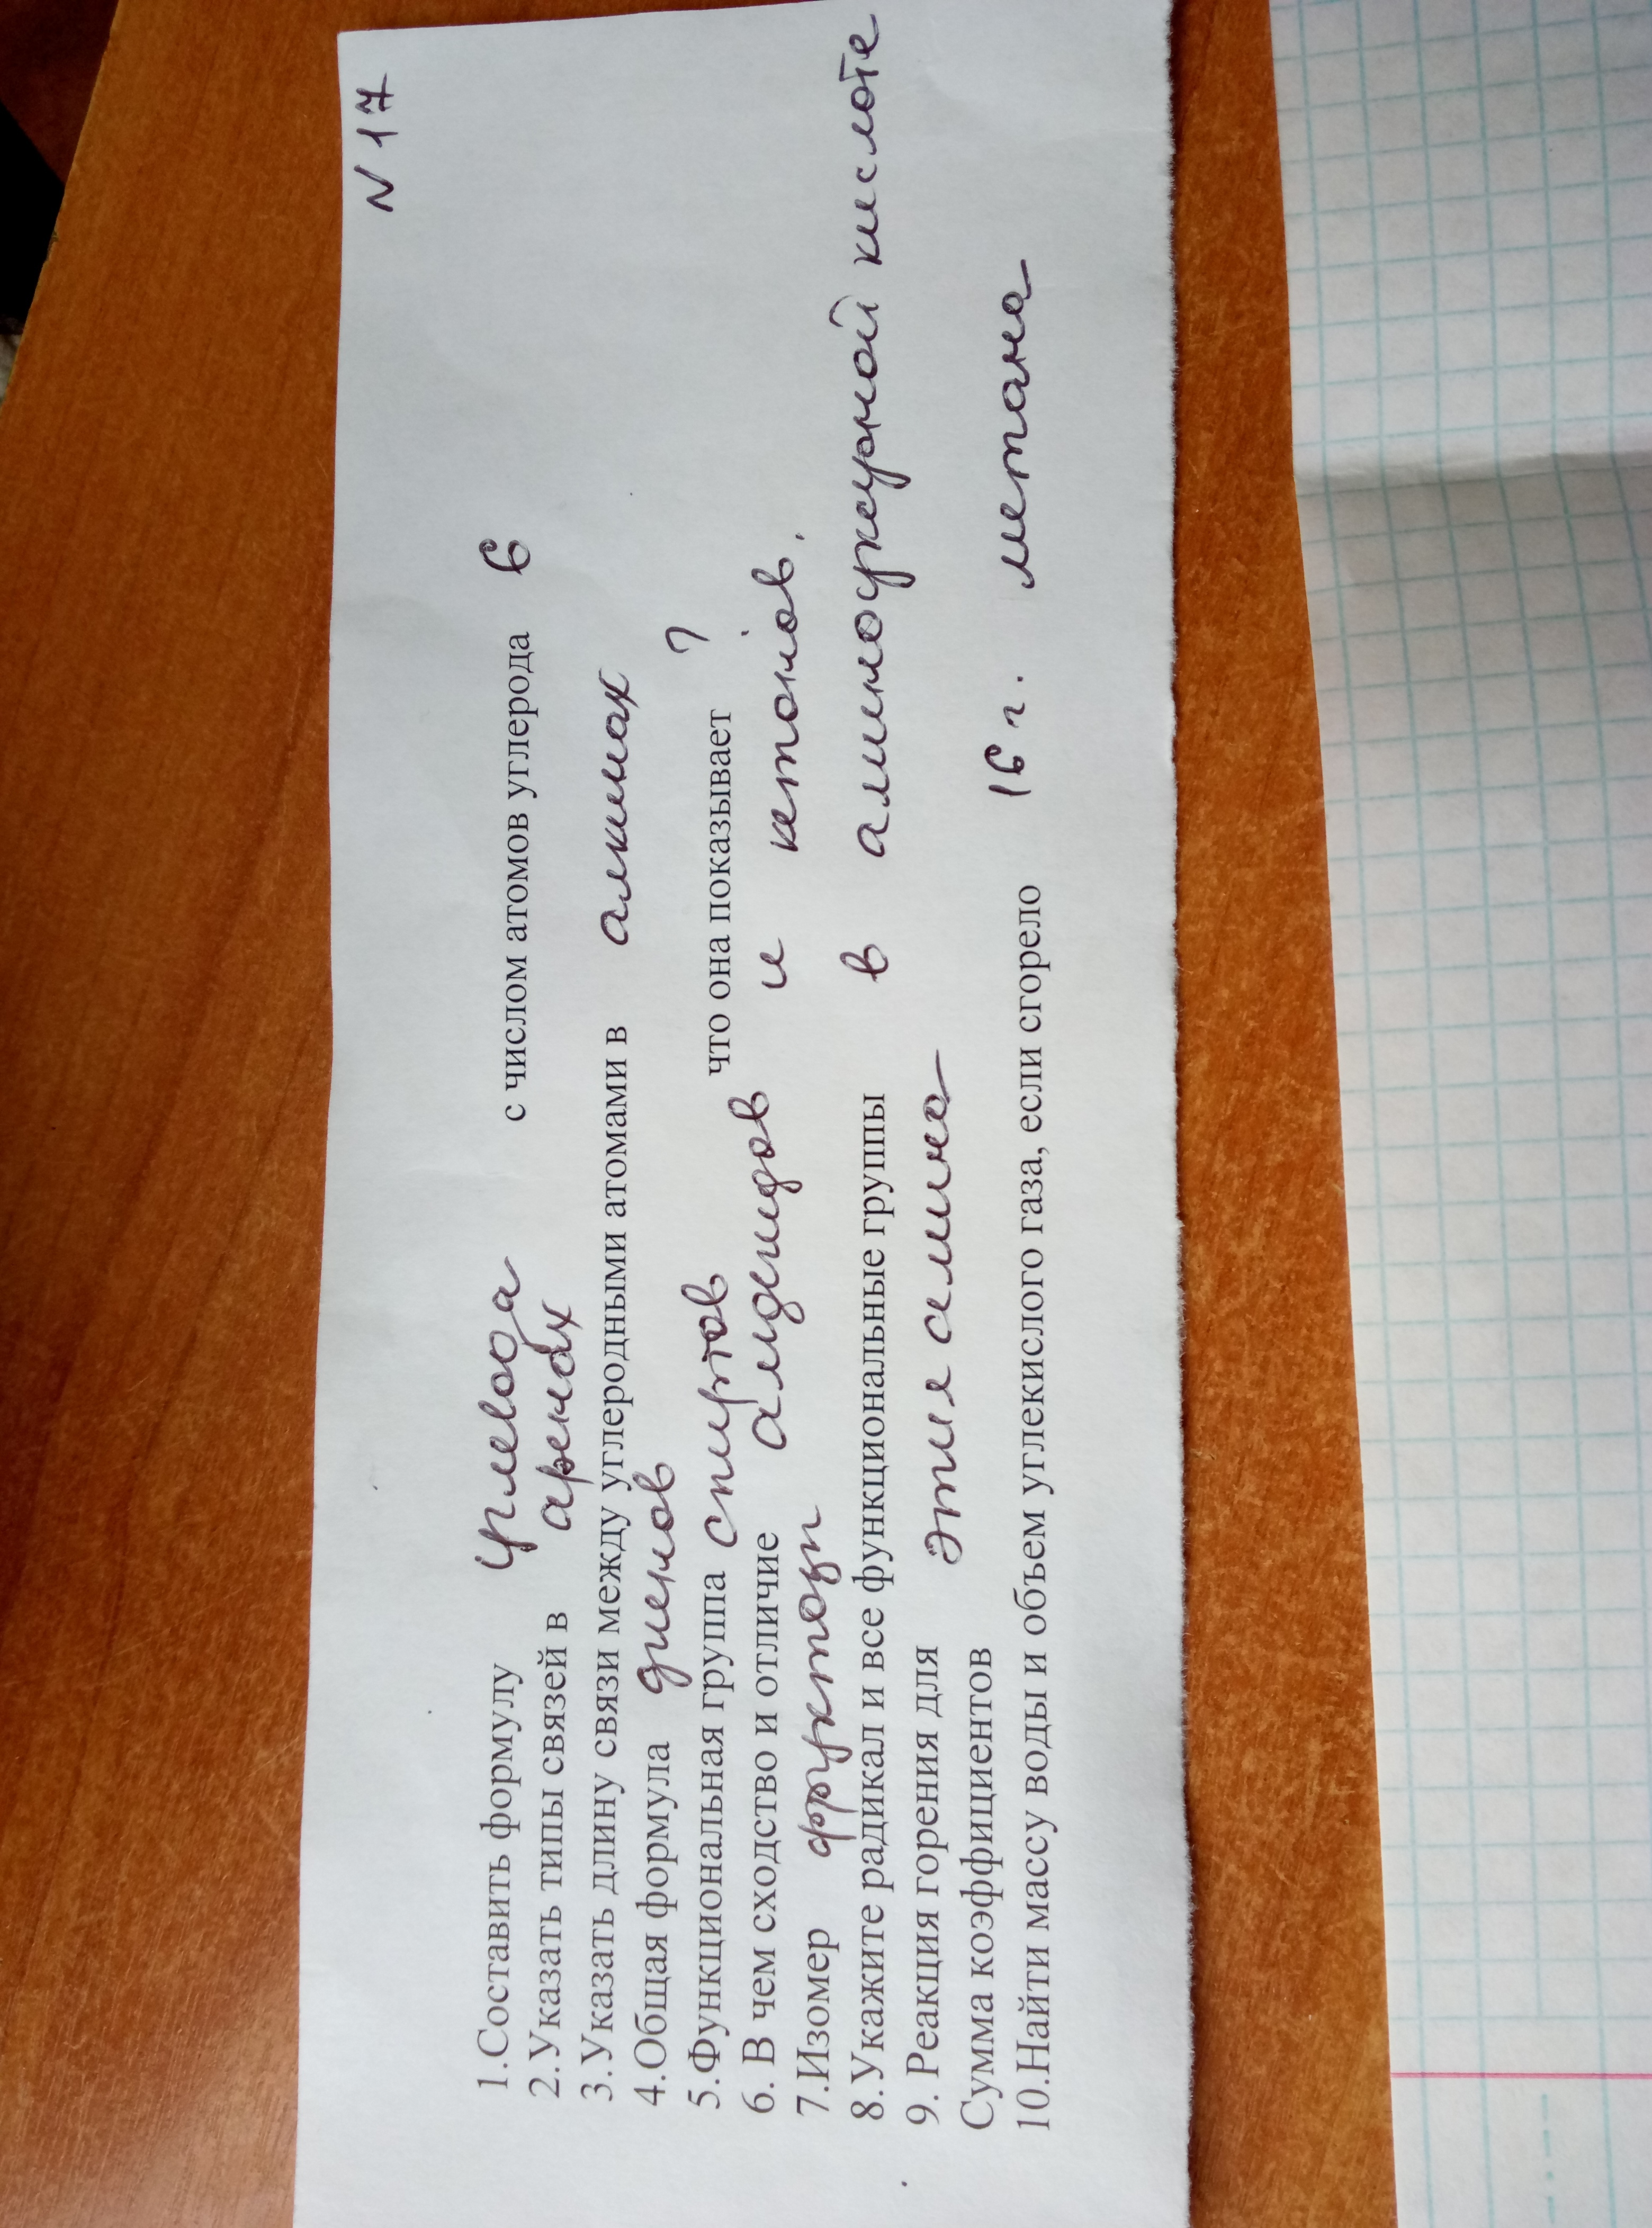 N 17
1.Составить формулу углевода с числом атомов углерода 6
2.Указать типы связей в аренах
3.Указать длину связи между углеродными атомами в алкинах
4.Общая формула диенов
5.Функциональная группа спиртов что она показывает ?
6. В чем сходство и отличие альдегидов и кетонов.
7.Изомер фруктозы
8.Укажите радикал и все функциональные группы в аминоуксусной кислоте
9. Реакция горения для этиламина
Сумма коэффициентов
10.Найти массу воды и объем углекислого газа, если сгорело 16 г. метана